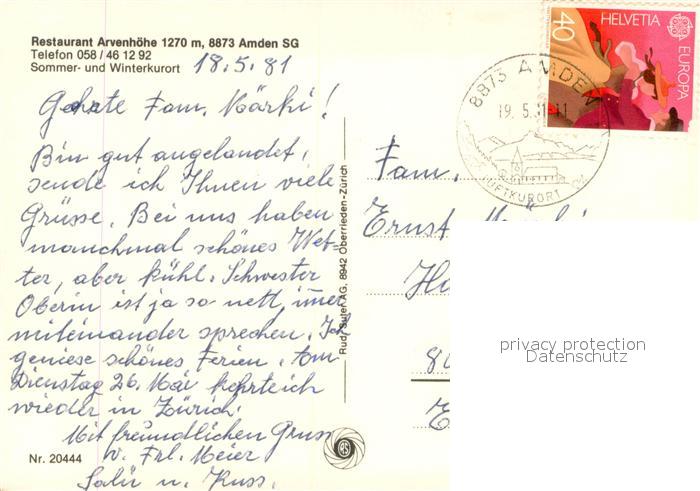 Restaurant Arvenhöhe 1270 m, 8873 Amden SG
Telefon 058 / 46 12 92
Sommer- und Winterkurort
18.5.81
Geehrte Fam. Märki!
Bin gut angelandet,
sende ich Ihnen viele
Grüsse. Bei uns haben
manchmal schönes Wet-
ter, aber kühl. Schwester
Oberin ist ja so nett, immer
miteinander sprechen. Ich
geniese schönes Ferien. Am
Dienstag 26. Mai kehrteich
wieder in Zürich.
Mit freundlichen Gruss
v. Frl. Meier
Salü u. Kuss.
Nr. 20444
Rud. Suter AG, 8942 Oberrieden-Zürich
RS
40
HELVETIA
EUROPA
8873 AMDEN
19.5.81-11
LUFTKURORT
Fam.
Ernst
80
privacy protection
Datenschutz